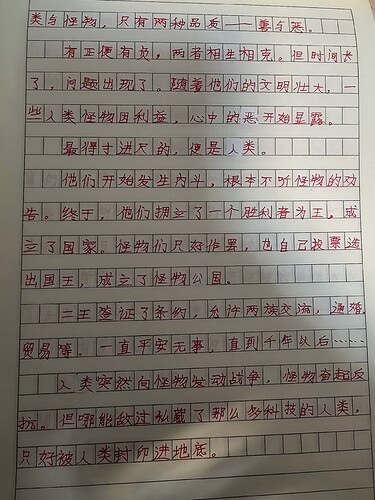 类与怪物，只有两种品质——善与恶。
有正便有负，两者相生相克。但时间长
了，问题出现了。随着他们的文明壮大，一
些人类怪物因利益，心中的恶开始显露。
最得寸进尺的，便是人类。
他们开始发生内斗，根本不听怪物的劝
告。终于，他们拥立了一个胜利者为王，成
立了国家。怪物们只好作罢，也自己投票选
出国王，成立了怪物公国。
二王签证了条约，允许两族交流，通婚，
贸易等。一直平安无事，直到千年以后……
人类突然向怪物发动战争，怪物奋起反
抗。但哪能敌过私藏了那么多科技的人类，
只好被人类封印进地底。